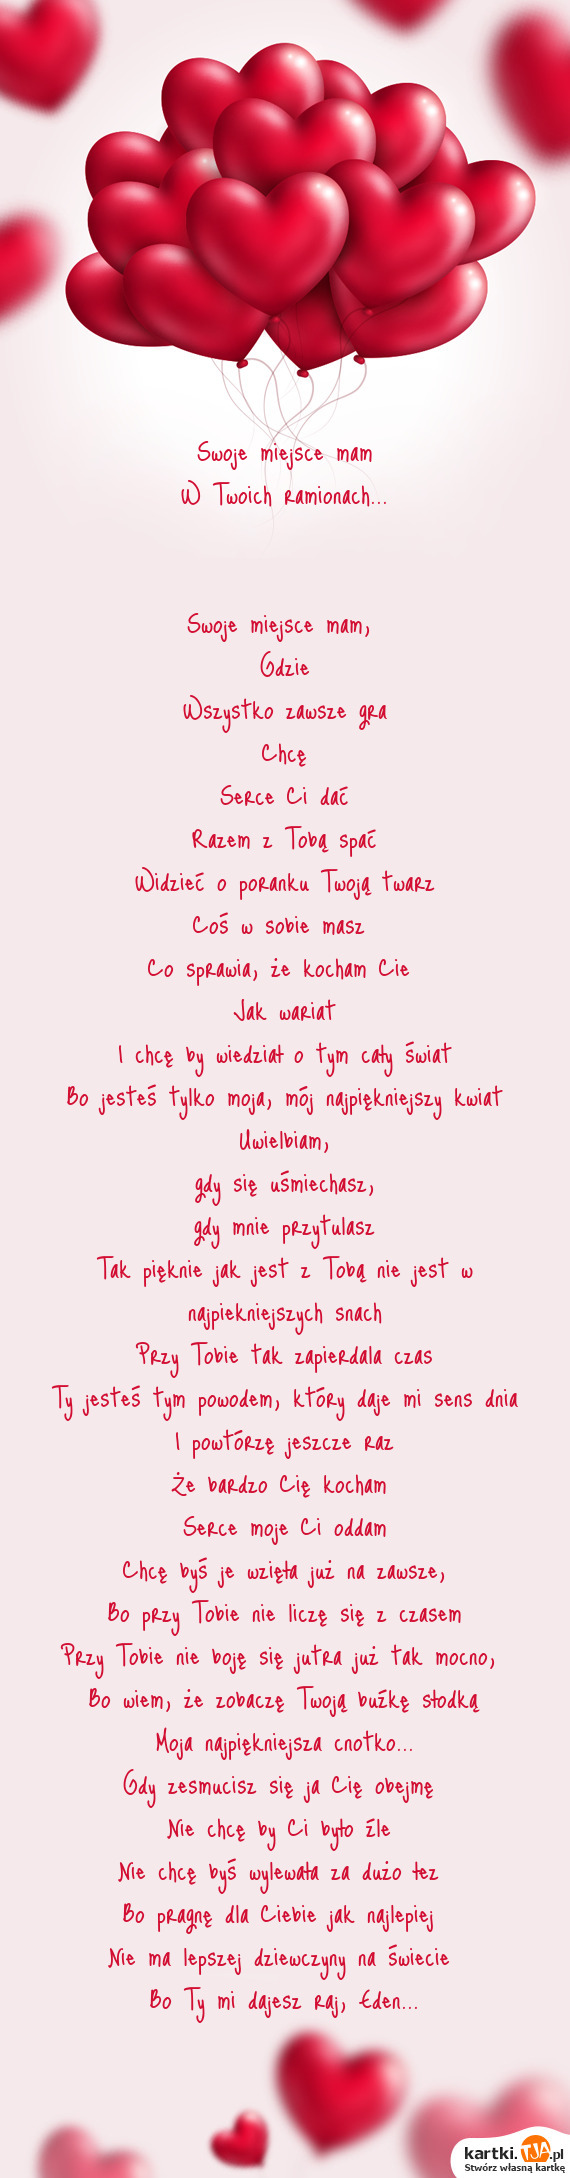 Swoje miejsce mam
W Twoich ramionach...
Swoje miejsce mam,
Gdzie
Wszystko zawsze gra
Chcę
Serce Ci dać
Razem z Tobą spać
Widzieć o poranku Twoją twarz
Coś w sobie masz
Co sprawia, że kocham Cie
Jak wariat
I chcę by wiedział o tym cały świat
Bo jesteś tylko moja, mój najpiękniejszy kwiat
Uwielbiam,
gdy się uśmiechasz,
gdy mnie przytulasz
Tak pięknie jak jest z Tobą nie jest w
najpiekniejszych snach
Przy Tobie tak zapierdala czas
Ty jesteś tym powodem, który daje mi sens dnia
I powtórzę jeszcze raz
Że bardzo Cię kocham
Serce moje Ci oddam
Chcę byś je wzięła już na zawsze,
Bo przy Tobie nie liczę się z czasem
Przy Tobie nie boję się jutra już tak mocno,
Bo wiem, że zobaczę Twoją buźkę słodką
Moja najpiękniejsza cnotko...
Gdy zesmucisz się ja Cię obejmę
Nie chcę by Ci było źle
Nie chcę byś wylewała za dużo łez
Bo pragnę dla Ciebie jak najlepiej
Nie ma lepszej dziewczyny na świecie
Bo Ty mi dajesz raj, Eden...
kartki.TJA.pl
Stwórz własną kartkę